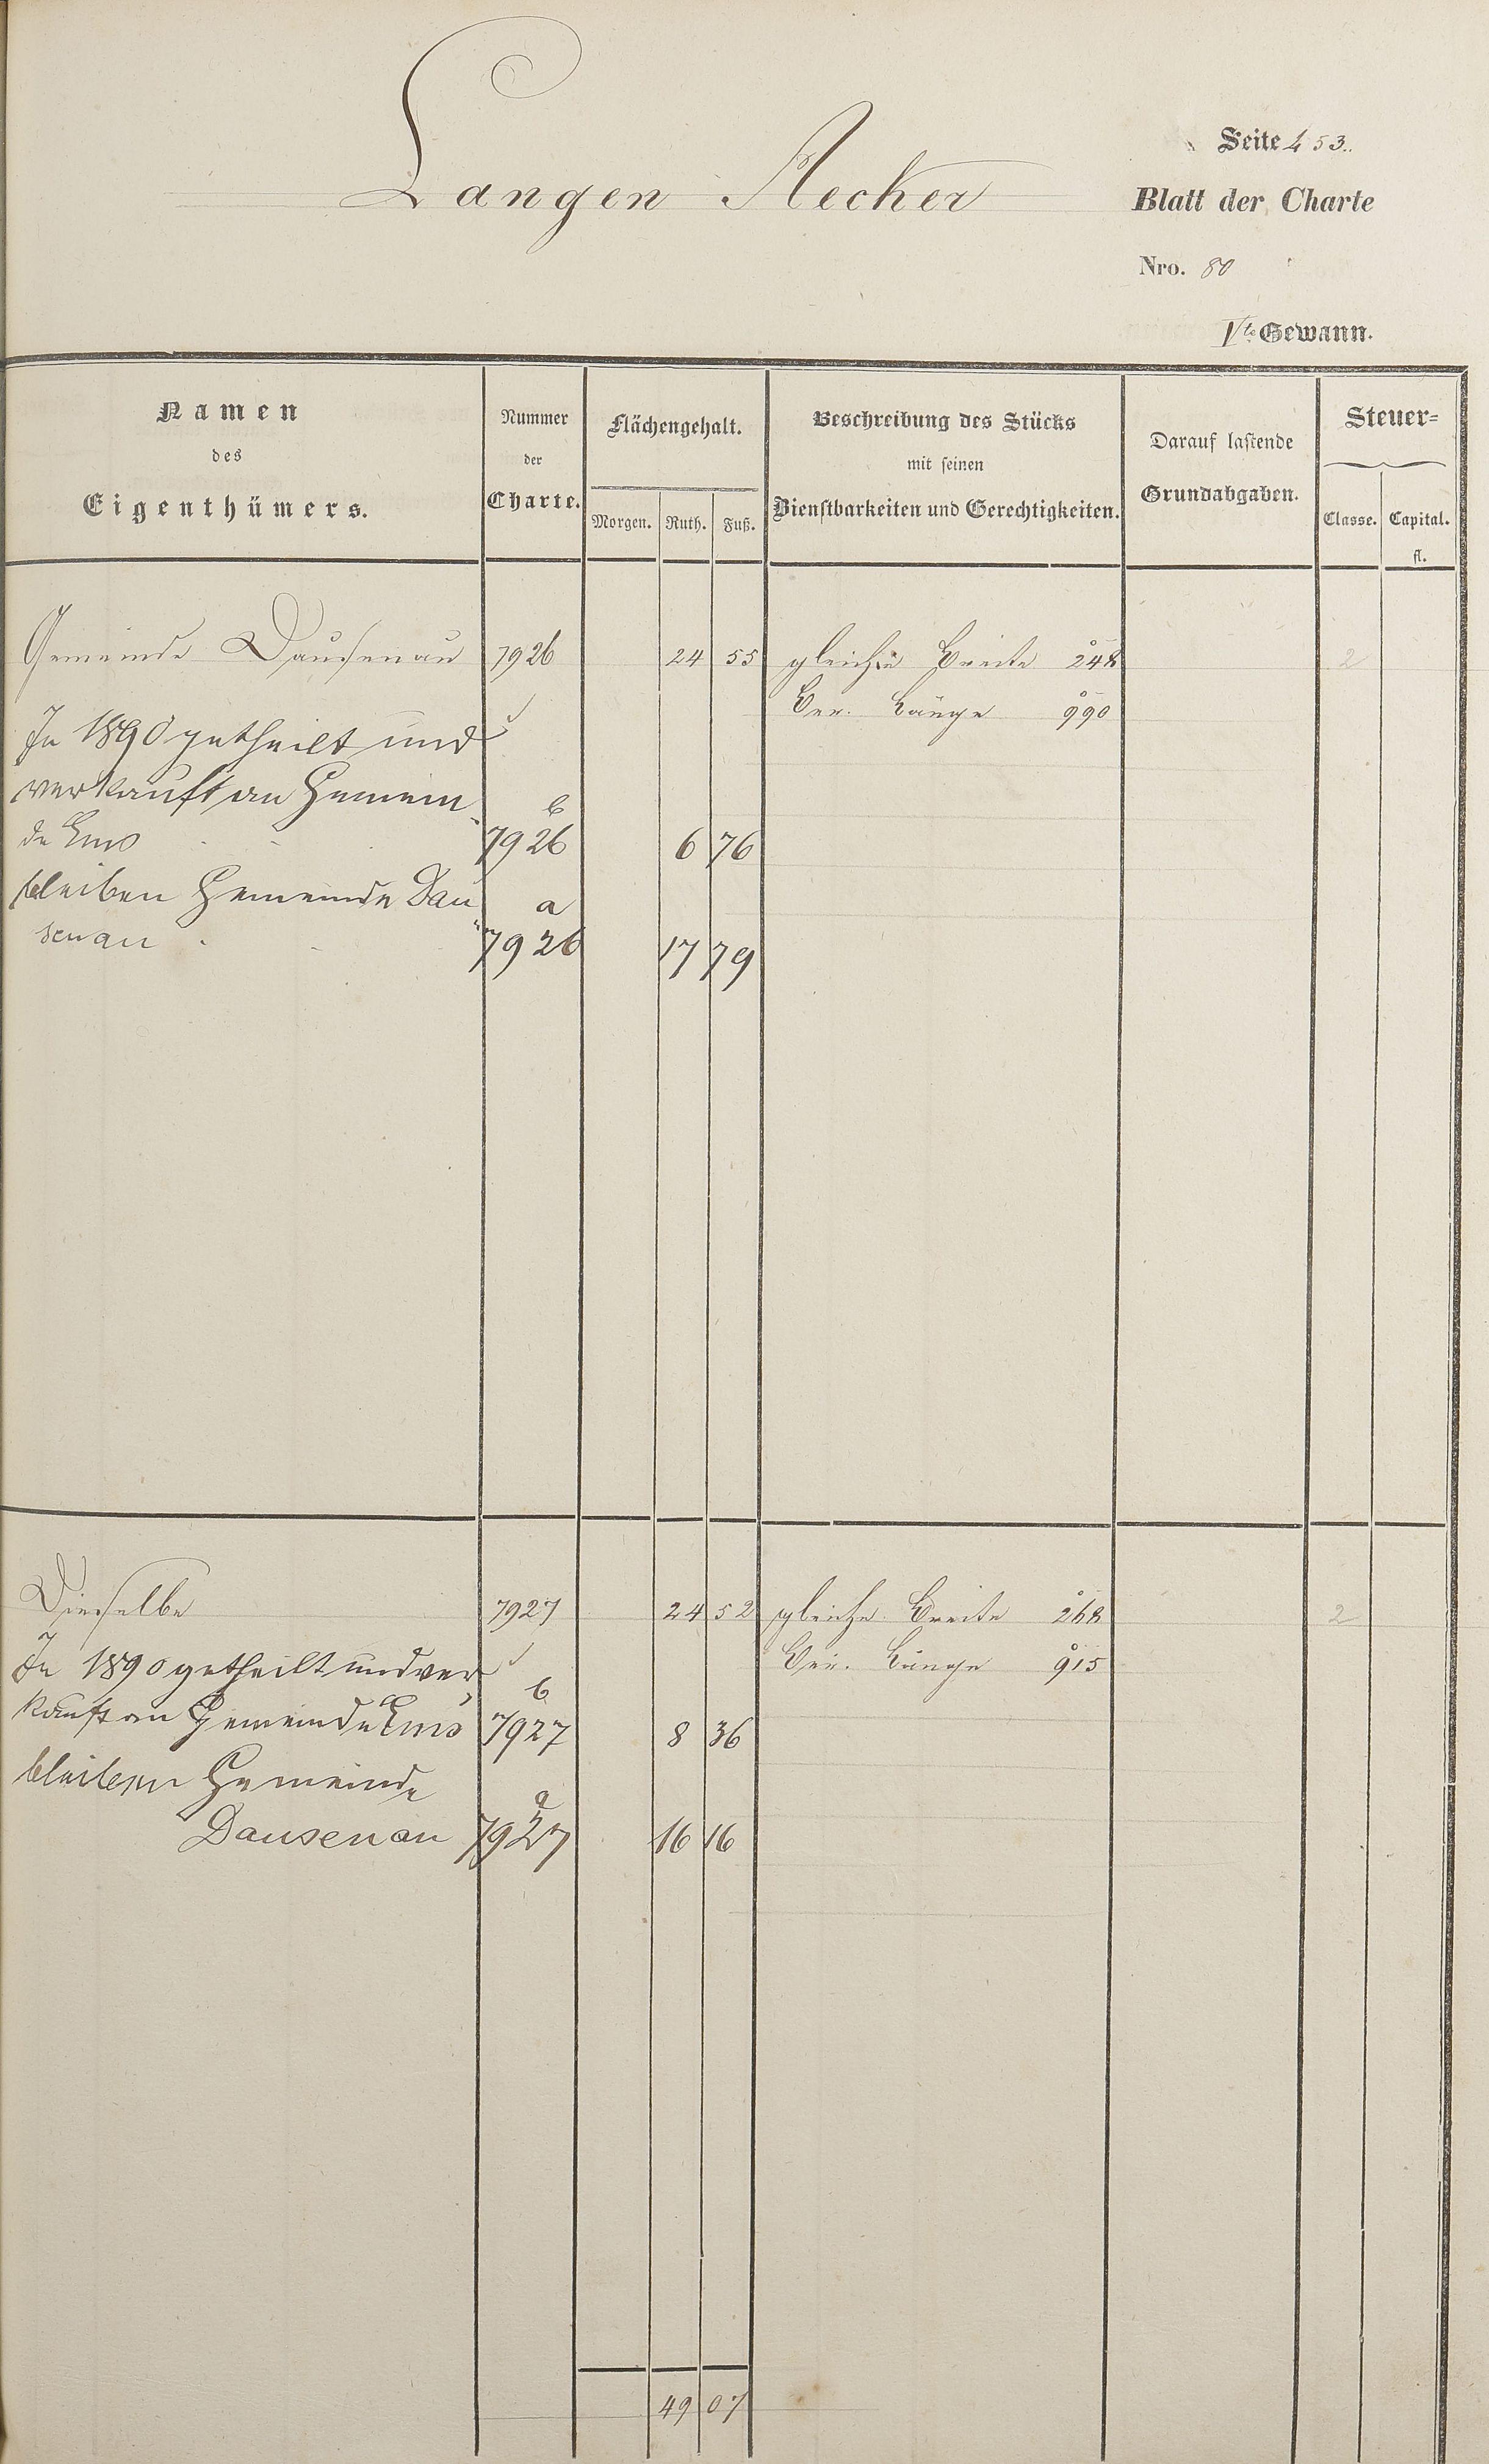 Langen Aecker
Seite 453.
Blatt der Charte
Nro. 80
Vte Gewann.
Namen
des
Eigenthümers.
Nummer
der
Charte.
Flächengehalt.
Morgen. Ruth. Fuß.
Beschreibung des Stücks
mit seinen
Dienstbarkeiten und Gerechtigkeiten.
Darauf lastende
Grundabgaben.
Steuer=
Classe. Capital.
fl.
Gemeinde Dausenau 7926 24 55 gleiche Breite 248 2
Ver. Länge 990
In 1890 getheilt und
verkauft an Gemein
b
de Ems 7926 6 76
bleiben Gemeinde Dau
a
senau 7926 17 79
Dieselbe 7927 24 52 gleiche Breite 268 2
Ver. Länge 915
In 1890 getheilt und ver
b
kauft an Gemeinde Ems 7927 8 36
bleiben Gemeinde
a
Dausenau 7927 16 16
49 07